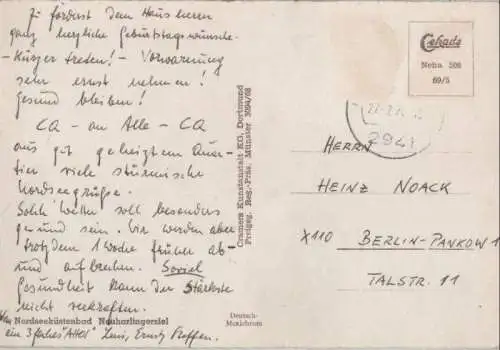 Zu förderst dem Hausherrn
ganz herzliche Geburtstagswünsche -
- Kürzer treten! - Vorwarnung
sehr ernst nehmen!
Gesund bleiben!
CA - an Alle - CA
aus gut geheiztem Quar-
tier viele stürmische
Nordseegrüße.
Solch Wetter soll besonders
gesund sein. Wir werden aber
trotzdem 1 Woche früher ab-
und aufbrechen. Soviel
Gesundheit kann der Stärkste
nicht verkraften.
Nordseeküstenbad Neuharlingersiel
ein 3faches "AHOI"
Cramers Kunstanstalt KG, Dortmund
Fretgeg. Reg.-Präs. Münster 3694/68
Deutsch-
Mexichrom
Cekade
Neha 508
69/5
2941
HERRN
HEINZ NOACK
X110 BERLIN-PANKOW 1
TALSTR. 11